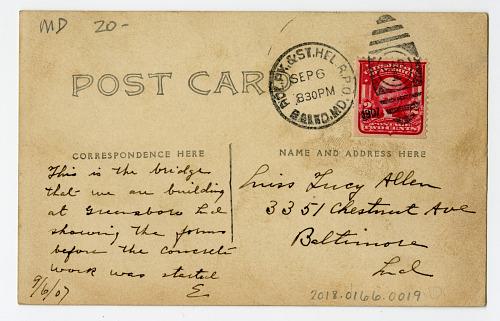 MD 20-
POST CARD
ROL. PK. & ST. HEL. R.P.O.
SEP 6
830PM
BALTO. MD.
TWO CENTS
CORRESPONDENCE HERE
NAME AND ADDRESS HERE
This is the bridge
that we are building
at Greensboro Md
showing the forms
before the concrete
work was started
E.
9/6/07
Miss Lucy Allen
3351 Chestnut Ave
Baltimore
Md
2018.0166.0019